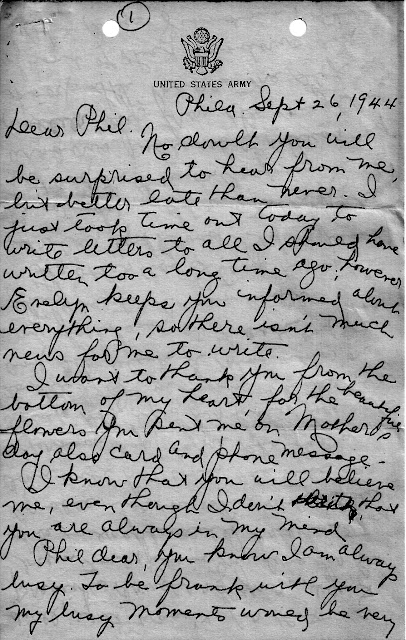 1
UNITED STATES ARMY
Phila. Sept 26, 1944
Dear Phil.
No doubt you will
be surprised to hear from me,
but better late than never. I
just took time out today to
write letters to all I should have
written too a long time ago, however
Evelyn keeps you informed about
everything, so there isn't much
news for me to write.
I want to thank you from the
bottom of my heart, for the beautiful
flowers you sent me on Mother's
day also card and phone message.
I know that you will believe
me, even though I don't that
you are always in my mind
Phil dear, you know I am always
busy. To be frank with you
my busy moments would be very